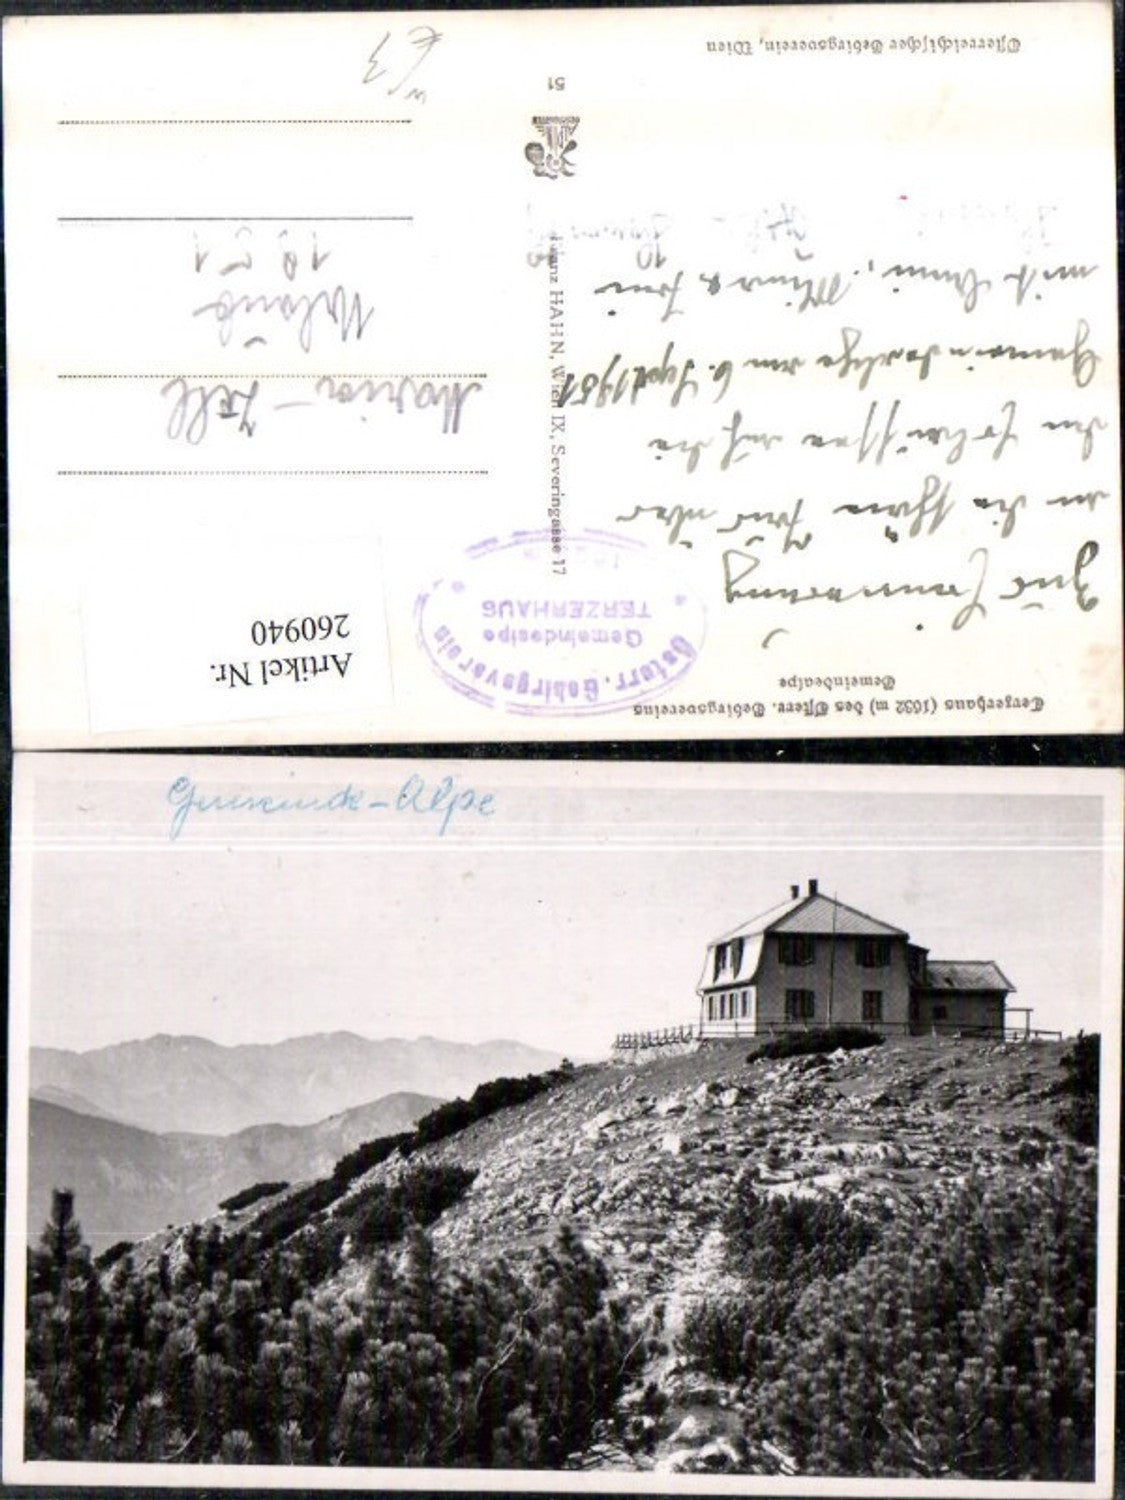 Terzerhaus (1632 m) des Österr. Gebirgsvereins
Gemeindealpe
Österr. Gebirgsverein
Gemeindealpe
TERZERHAUS
Artikel Nr.
260940
Zur Erinnerung
an die schöne
auf die
Gemeindealpe am 6. Sept 1951
mit
Maria-Zell
Urlaub
1951
Franz HAHN, Wien IX, Severingasse 17
51
Österreichischer Gebirgsverein, Wien
€ 3
Gemeinde-Alpe